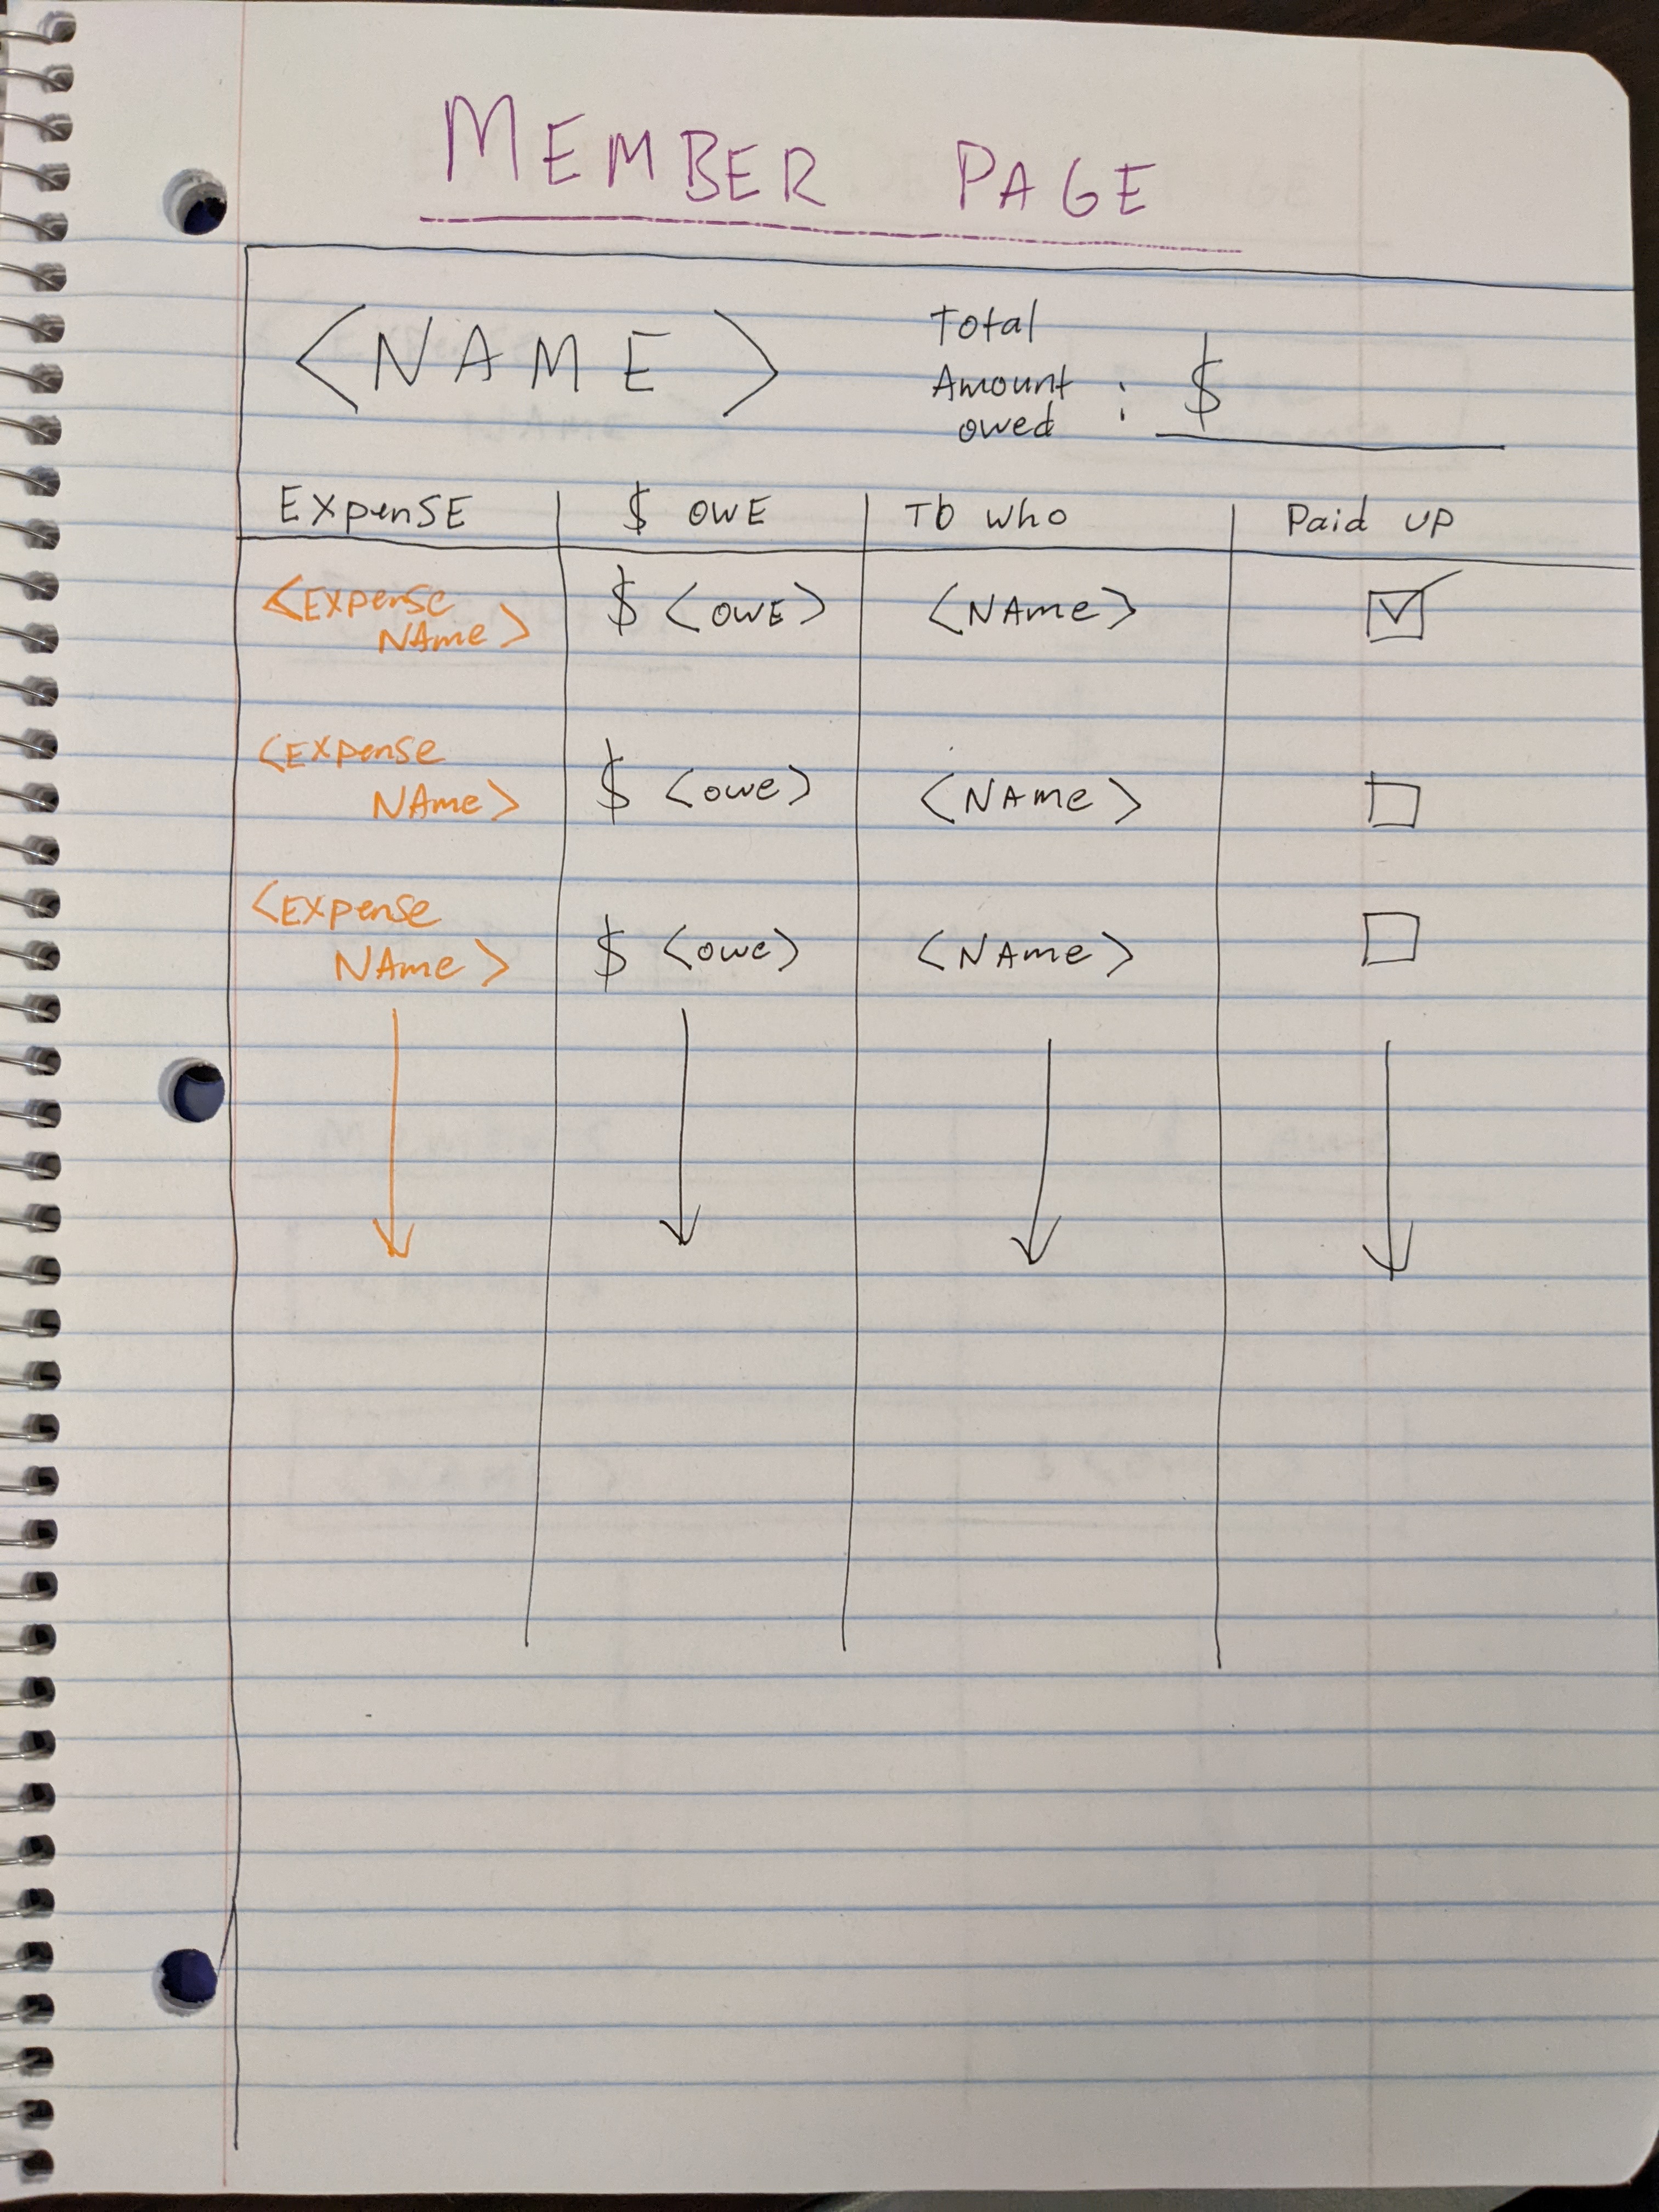 MEMBER PAGE
<NAME>
Total
Amount : $
owed
EXpenSE | $ OWE | To who | Paid up
<Expense
NAme> $ <OWE> <NAme>
<Expense
NAme> $ <owe> <NAme>
<Expense
NAme> $ <owe> <NAme>